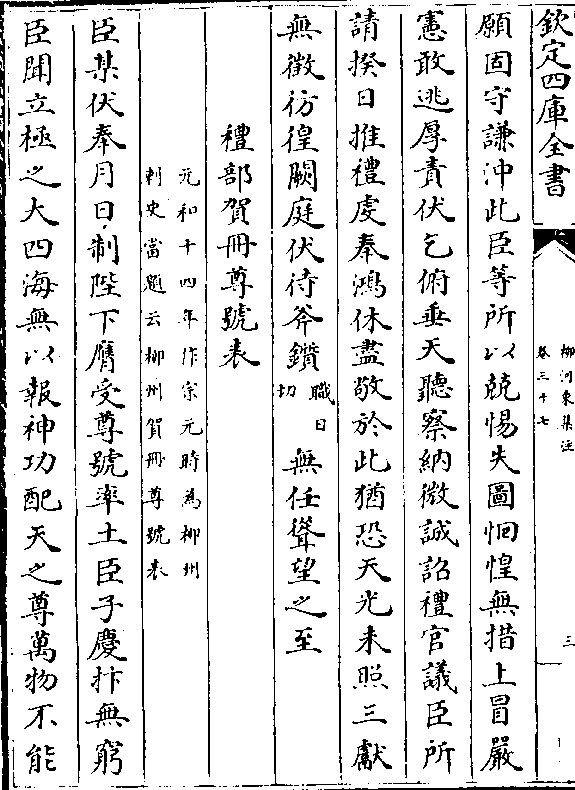 欽定四庫全書
柳河東集注
卷三十七
三
願固守謙沖此臣等所以兢惕失圖恛惶無措上冒嚴
憲敢逃厚責伏乞俯垂天聽察納微誠詔禮官議臣所
請揆日推禮虔奉鴻休盡敬於此猶恐天光未照三獻
無徵彷徨闕庭伏待斧鑕職日切無任聳望之至
禮部賀冊尊號表
元和十四年作宗元時為柳州
刺史當題云柳州賀冊尊號表
臣某伏奉月日制陛下膺受尊號率土臣子慶抃無窮
臣聞立極之大四海無以報神功配天之尊萬物不能